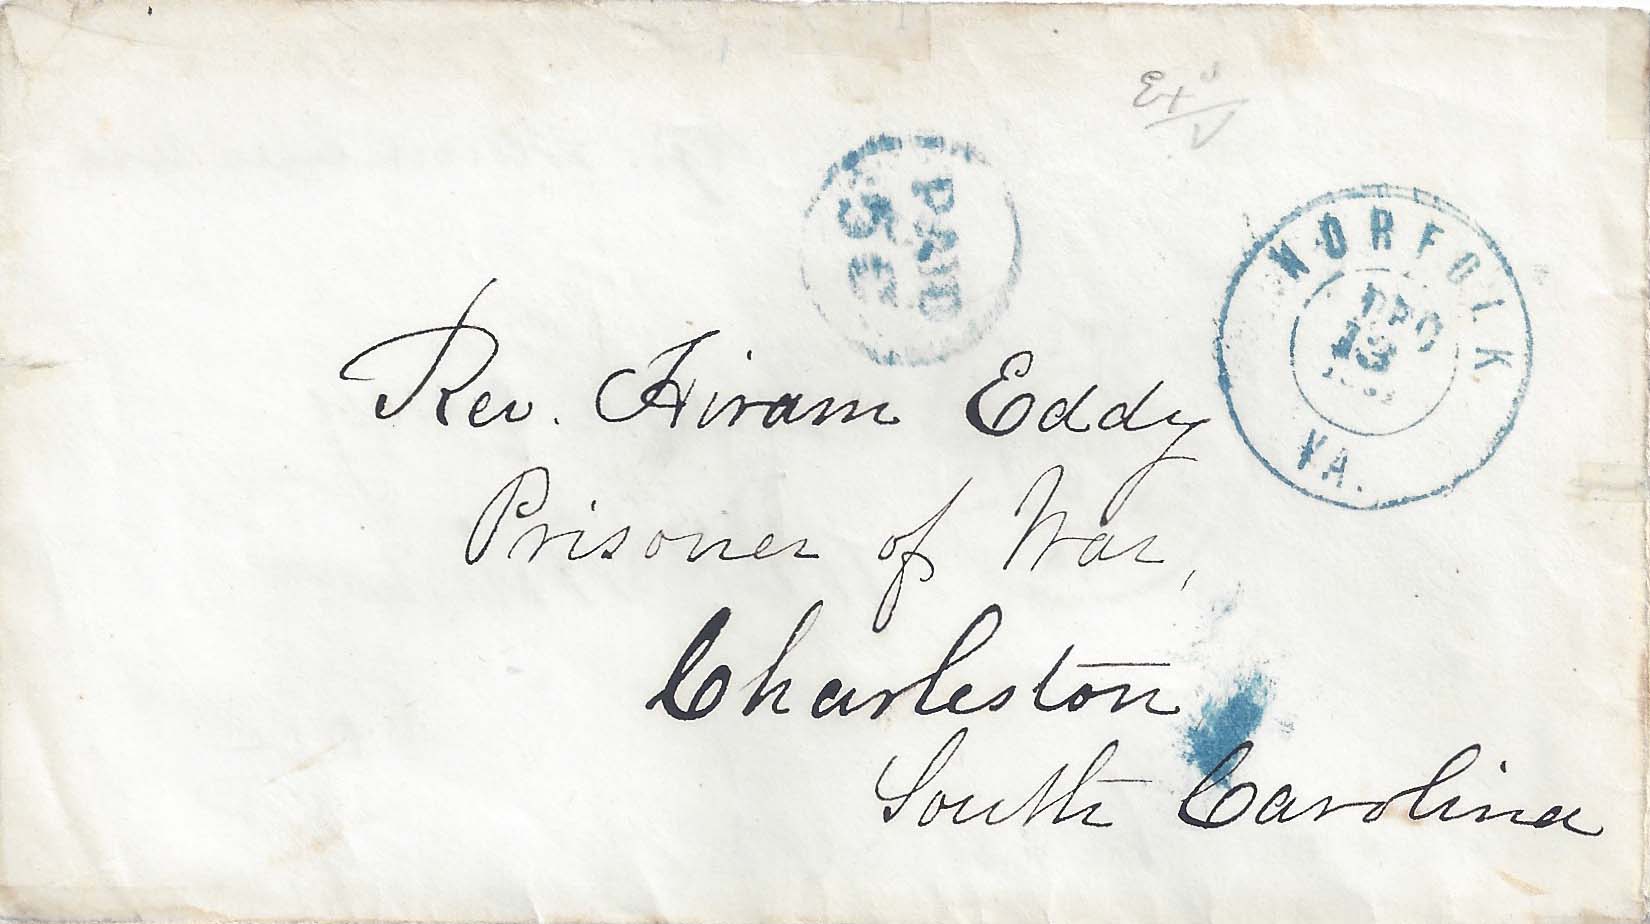 PAID
5
NORFOLK
DEC
13
VA.
Rev. Hiram Eddy
Prisoner of War,
Charleston
South Carolina